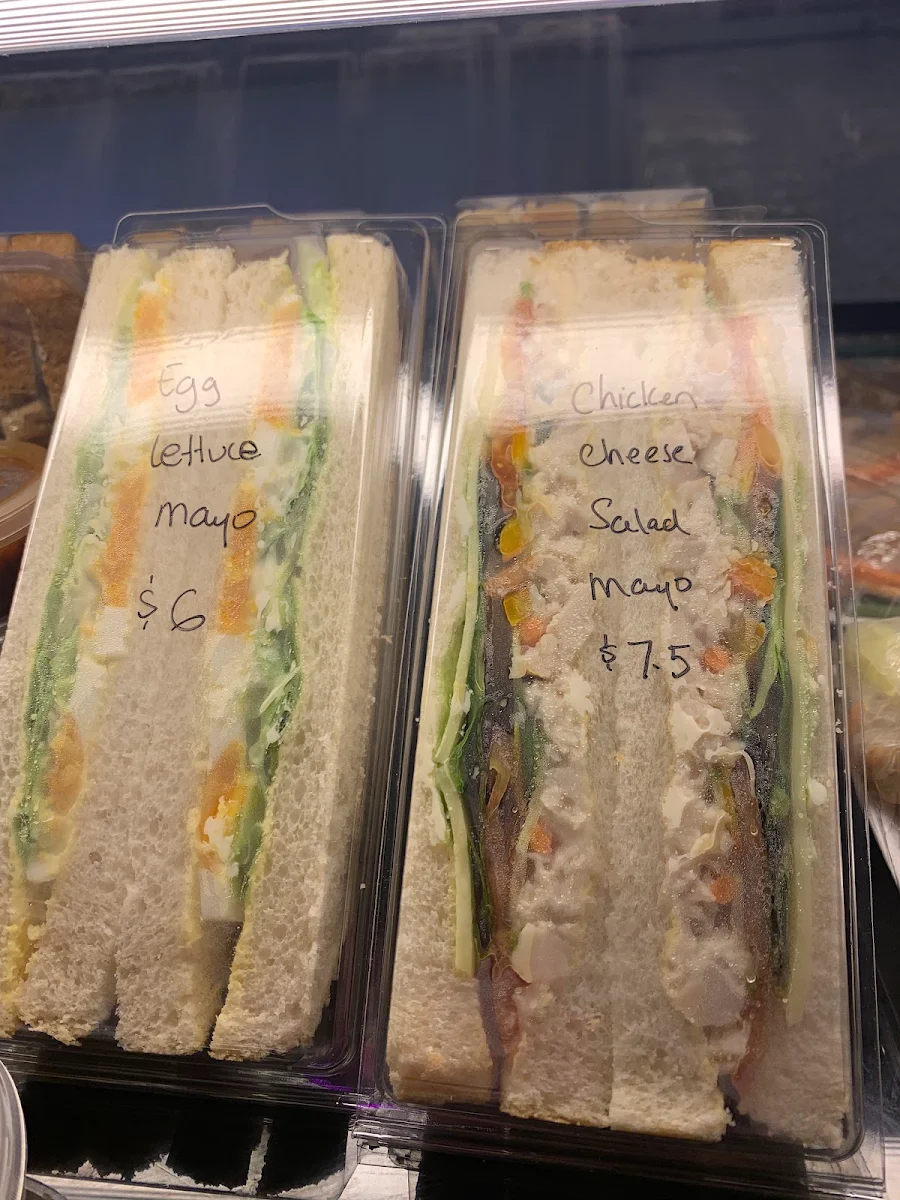 Egg
lettuce
mayo
$6
Chicken
cheese
Salad
mayo
$7.5